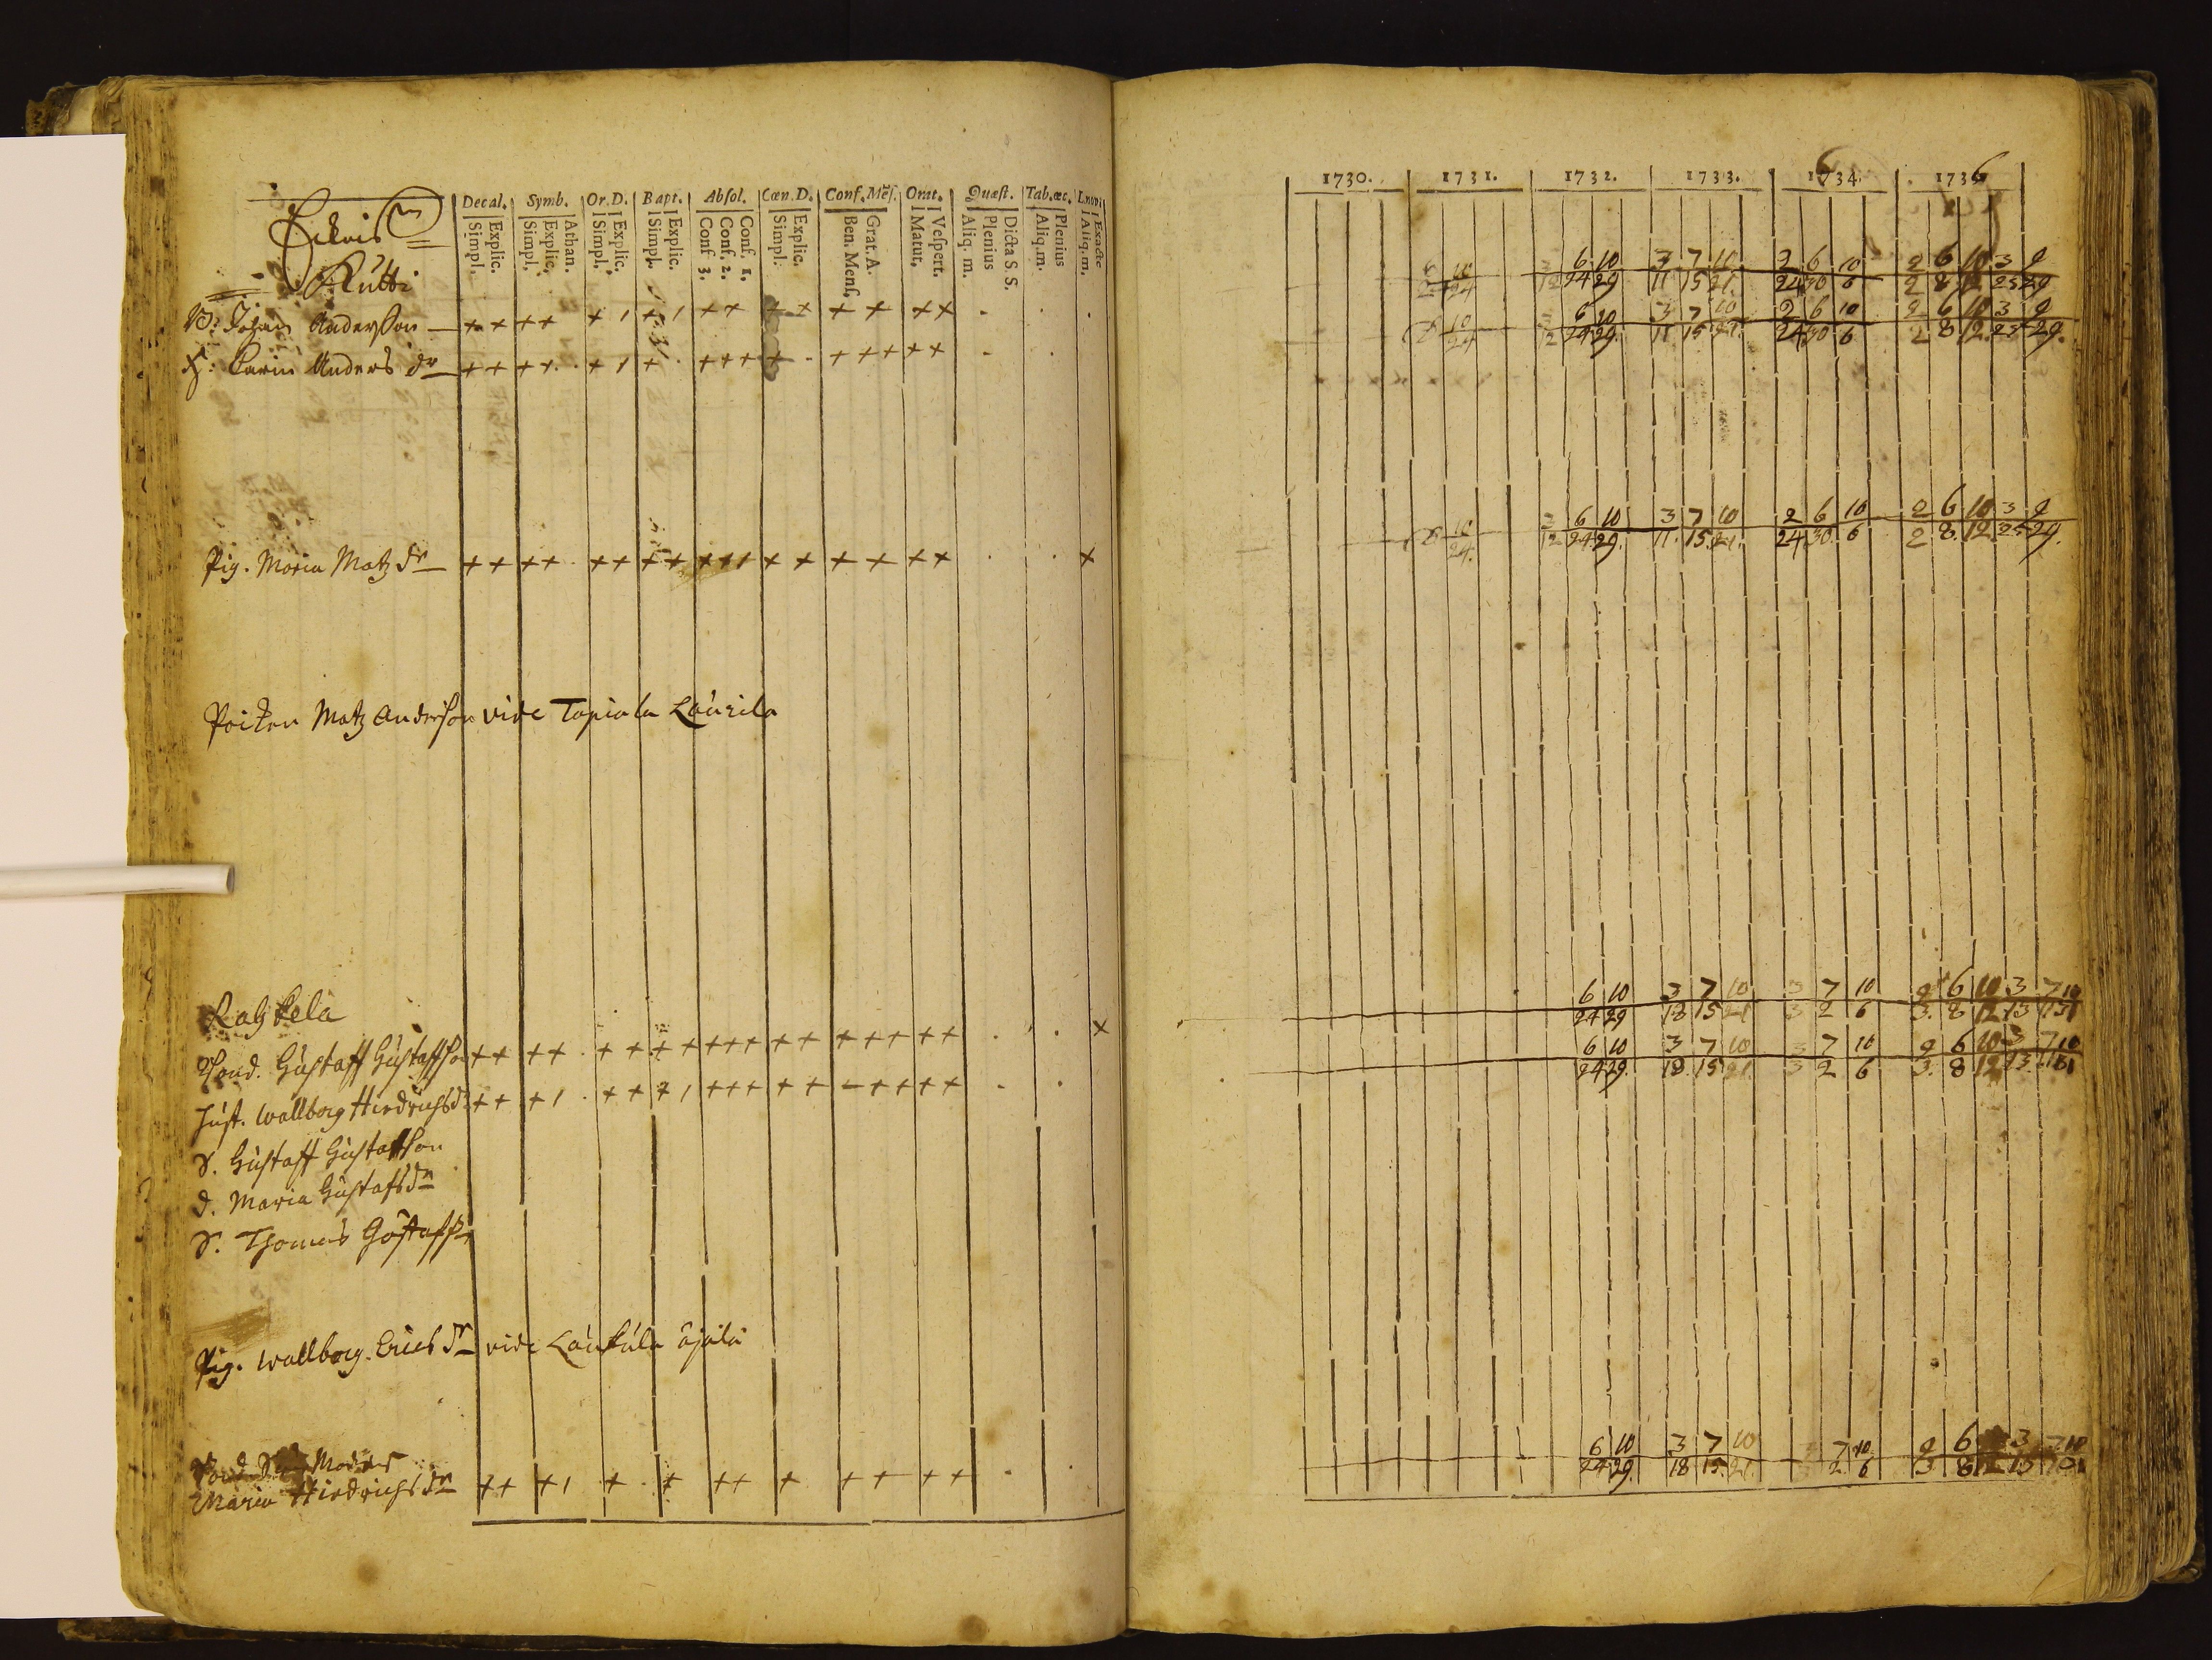 Decal. Symb. Or.D. Bapt. Absol. Cœn.D. Conf.Mēs. Orat. Quæst. Tab.œc. L.novi
Simpl. Explic. Simpl. Explic. Athan. Simpl. Explic. Simpl. Explic. Conf 3. Conf. 2. Conf. 1. Simpl. Explic. Ben. Mens. Grat. A. Matut. Vespert. Aliq. m. Plenius Dicta S S. Aliq. m. Plenius Aliq. m. Exacte
Eckois
Rutti
B: Johan Andersson + + + + + 1 + 1 + + + + + + + + . . .
H: Carin Anders dr + + + + . + 1 + . + + + + . + + + + + . .
Pig. Maria Matz dr + + + + . + + + + + + 1 + + + + + + . . +
Poiken Matz Andersson vide Tapiala Laurila
Rahkela
Bond. Gustaff Gustaffson + + + + . + + + + + + + + + + + + + + . . . +
Hust. Wallborg Hindrichsdr + + + 1 . + + + 1 + + + + + - + + + + . .
S. Gustaff Gustaffson
d. Maria Gustafsdr
S. Thomas Gustaffs
Pig. Wallborg Erics dr vide Laukula äjälä
Bond. Moder
Maria Hindrichs dr + + + 1 + . + + + + + + + + . .
1730. 1731. 1732. 1733. 1734. 1736
10 6 10 3 7 10 2 6 10 2 6 10 3 2
24 12 24 29 11 15 21. 24 30 6 2 8 12 25 29
10 6 10 3 7 10 2 6 10 2 6 10 3 2
24 12 24 29. 11 15 21. 24 30 6 2 8 12. 25 29.
10 3 6 10 3 7 10 2 6 10 2 6 10 3 2
24. 12 24 29. 11. 15. 21. 24 30. 6 2 8. 12. 25 29.
6 10 3 7 10 3 7 10 2 6 10 3 7 10
24 29 18 15 21 3 2 6 3. 8 12 13
6 10 3 7 10 3 7 10 2 6 10 3 7 10
24 29. 18. 15 21. 3 2 6 3. 8 12 13.
6 10 3 7 10 7 10 2 6 3 7 10
24 29. 18 15. 21. 2. 6 3 8 12 13